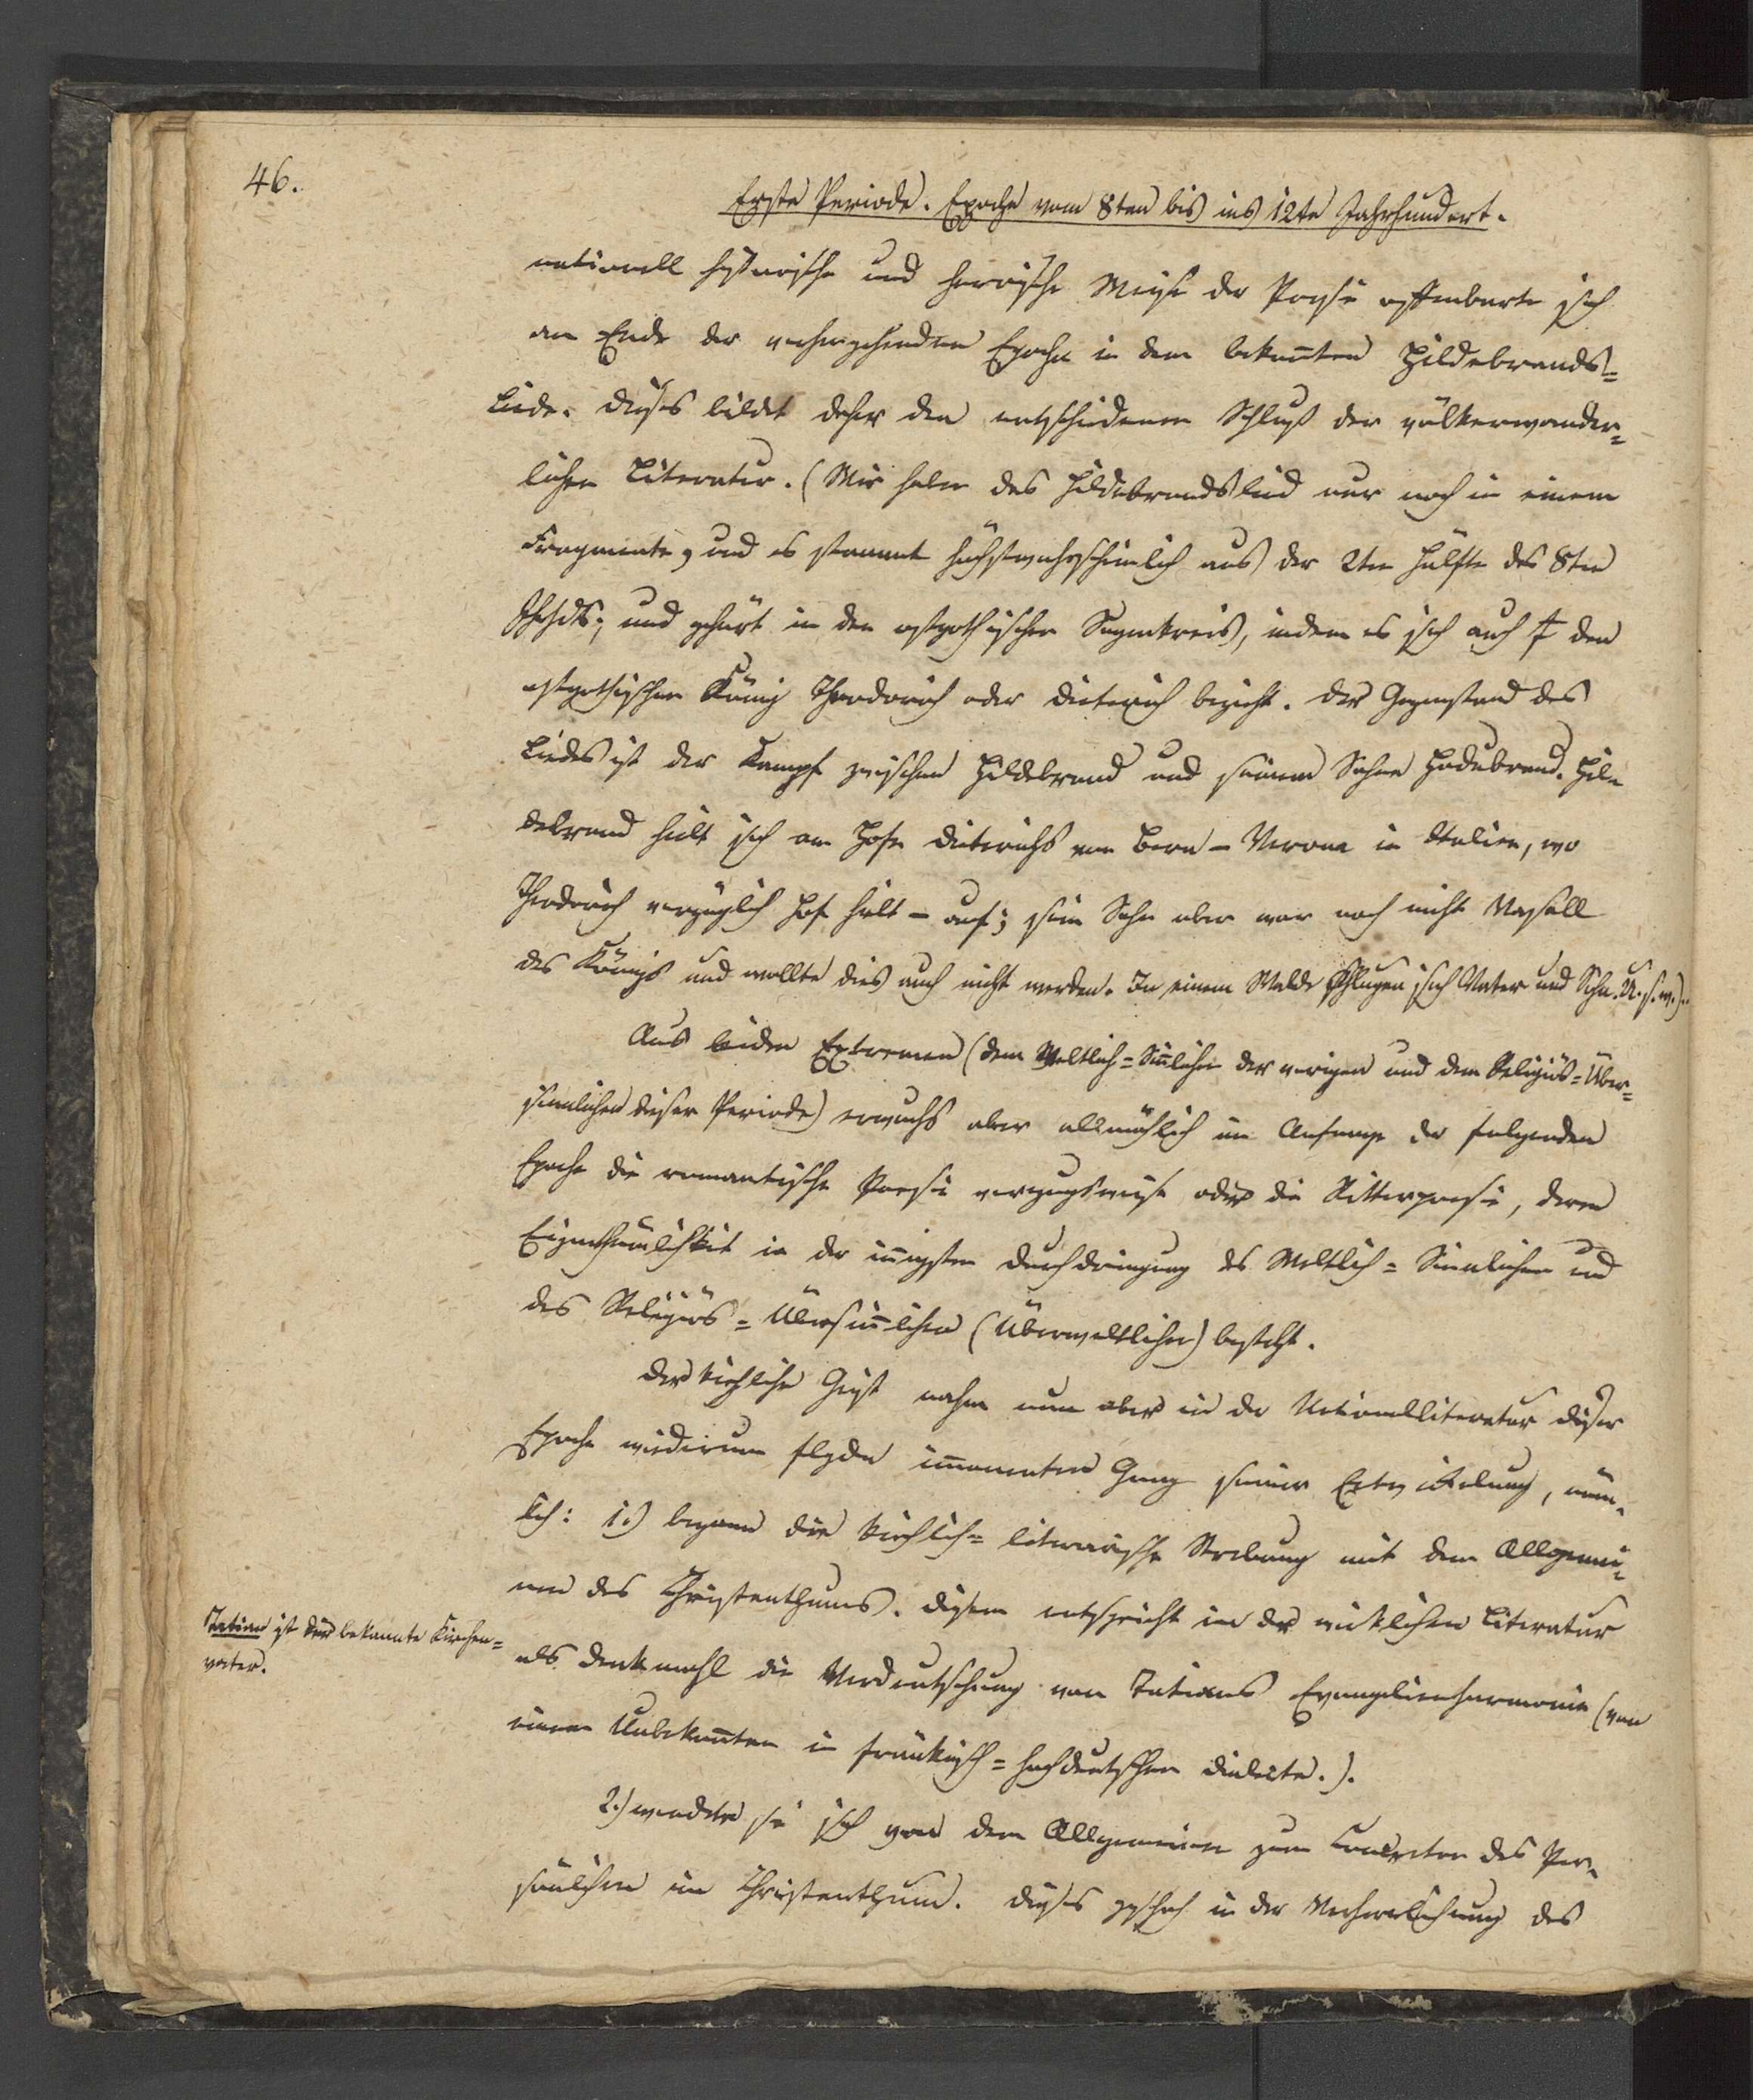 46.
Erste Periode. Epoche vom 8ten bis ins 12te Jahrhundert.
nationell historische und heroische Weise der Poesie offenbarte sich
am Ende der vorhergehenden Epoche in dem bekañten Hildebrands=
Liede. Dieses bildet daher den entschiedenen Schluß der völkerwander=
lichen Literatur. (Wir haben das Hildebrandslied nur noch in einem
Fragmente, und es stammt höchstwahrscheinlich aus der 2ten Hälfte des 8ten
Jhhdts; und gehört in den ostgothischen Sagenkreis, indem es sich auch den
ostgothischen König Theodorich oder Dieterich bezieht. Der Gegenstand des
Liedes ist der Kampf zwischen Hildebrand und seinem Sohne Hadubrand. Hil=
debrand hielt sich am Hofe Dieterichs von Bern – Verona in Italien, wo
Theodorich vorzüglich Hof hielt – auf; sein Sohn aber war noch nicht Vasall
des Königs und wollte dies auch nicht werden. In einem Walde schlugen sich Vater und Sohn. U. s. w.).
Aus beiden Extremen (dem Weltlich=Siñlichen der vorigen und dem Religiös=Über=
sinnlichen dieser Periode) erwuchs aber allmählich im Anfange der folgenden
Epoche die romantische Poesie vorzugsweise oder die Ritterpoesie, deren
Eigenthümlichkeit in der iñigsten Durchdringung des Weltlich=Sinnlichen und
des Religiös=Übersiñlichen (Überweltlichen) besteht.
Der kirchliche Geist nahm nun aber in der Nationalliteratur dieser
Epoche wiederum flgdn im̄anenten Gang seiner Entwickelung, näm=
lich: 1.) begann die kirchlich=literarische Strebung mit dem Allgemei=
nen des Christenthums. Diesem entspricht in der wirklichen Literatur
als Denkmahl die Verdeutschung von Tatians Evangelienharmonie (von
einem Unbekañten in fränkisch=hochdeutschem Dialecte.).
2.) wendete sie sich von dem Allgemeinen zum Concreten des Per=
sönlichen im Christenthum. Dieses geschah in der Verherrlichung des
Tatian ist der bekannte Kirchen=
vater.